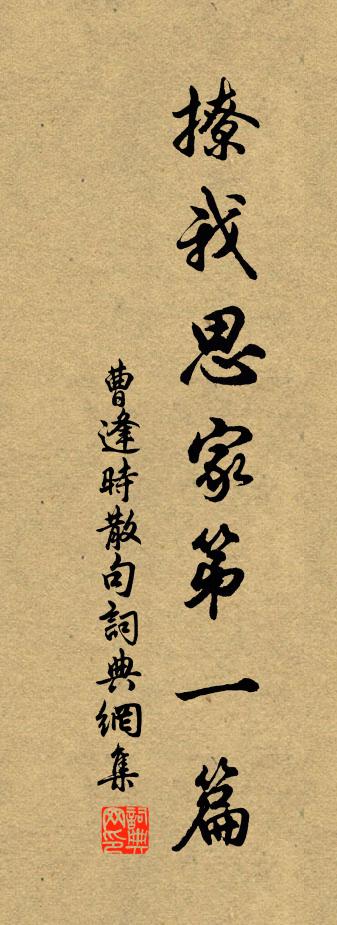 撩我思家第一篇
曹逢時散句詞典網集
詞典网印